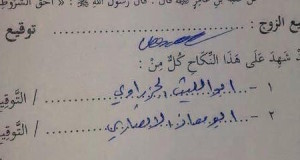 قال رسول الله ﷺ : " أحق الشروط
ع الزوج : توقيع
شَهِدَ عَلَى هَذَا النِّكَاحِ كُلٌّ مِنْ :
١ - ابو الليث الجزراوي / التوقيع
٢ - ابو معاذ الانصاري / التوقيع